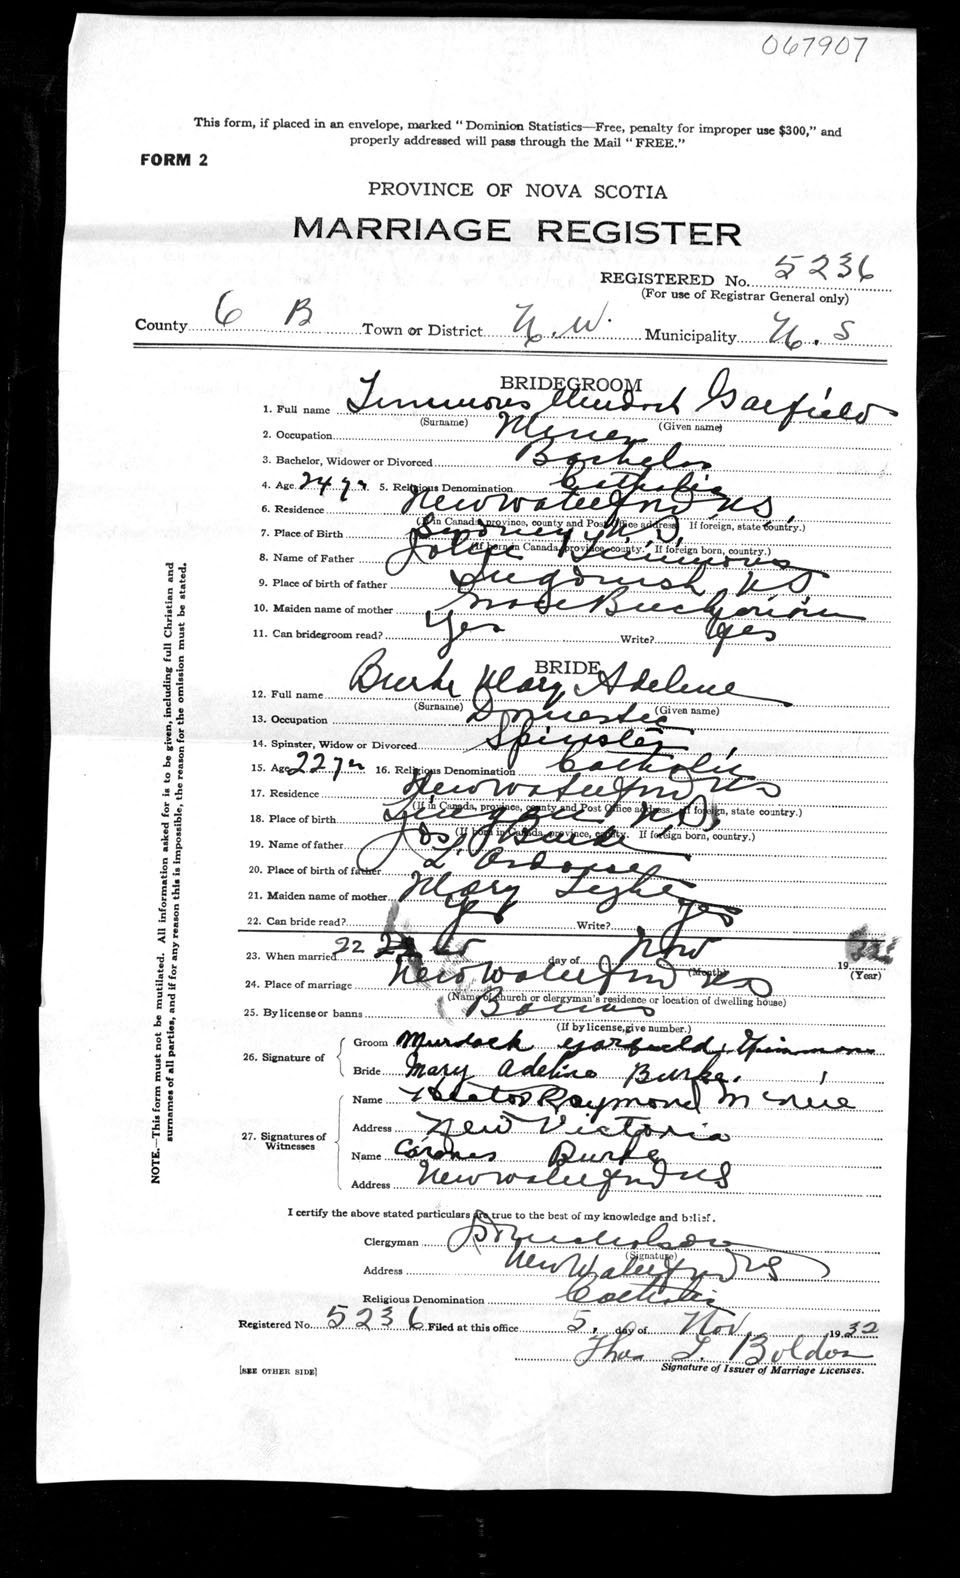 067907
This form, if placed in an envelope, marked "Dominion Statistics—Free, penalty for improper use $300," and
properly addressed will pass through the Mail "FREE."
FORM 2
PROVINCE OF NOVA SCOTIA
MARRIAGE REGISTER
REGISTERED No. 5236
(For use of Registrar General only)
County C B Town or District N.W. Municipality N.S
BRIDEGROOM
1. Full name Timmons Murdoch Garfield
(Surname) (Given name)
2. Occupation Miner
3. Bachelor, Widower or Divorced Bachelor
4. Age 24 yr. 5. Religious Denomination Catholic
6. Residence New Waterford NS
(If in Canada, province, county and Post Office address. If foreign, state country.)
7. Place of Birth Sydney N.S
(If born in Canada, province, county. If foreign born, country.)
8. Name of Father Timmons
9. Place of birth of father Ingonish NS
10. Maiden name of mother
11. Can bridegroom read? Yes Write? Yes
BRIDE
12. Full name Burke Mary Adelene
(Surname) (Given name)
13. Occupation Domestic
14. Spinster, Widow or Divorced Spinster
15. Age 22 yr 16. Religious Denomination Catholic
17. Residence New Waterford NS
(If in Canada, province, county and Post Office address. If foreign, state country.)
18. Place of birth NS
(If born in Canada, province, county. If foreign born, country.)
19. Name of father Jos Burke
20. Place of birth of father L'Ardoise
21. Maiden name of mother Mary
22. Can bride read? yes Write? yes
23. When married 22 day of Nov 19
(Month) (Year)
24. Place of marriage New Waterford NS
(Name of church or clergyman's residence or location of dwelling house)
25. By license or banns Banns
(If by license, give number.)
26. Signature of
Groom Murdock Garfield Timmons
Bride Mary Adeline Burke.
27. Signatures of Witnesses
Name Raymond
Address New Victoria
Name Burke
Address New Waterford NS
I certify the above stated particulars are true to the best of my knowledge and belief.
Clergyman Nicholson
(Signature)
Address New Waterford NS
Religious Denomination Catholic
Registered No. 5236 Filed at this office 5. day of Nov 1932
Thos
Signature of Issuer of Marriage Licenses.
[SEE OTHER SIDE]
NOTE.—This form must not be mutilated. All information asked for is to be given, including full Christian and
surnames of all parties, and if for any reason this is impossible, the reason for the omission must be stated.